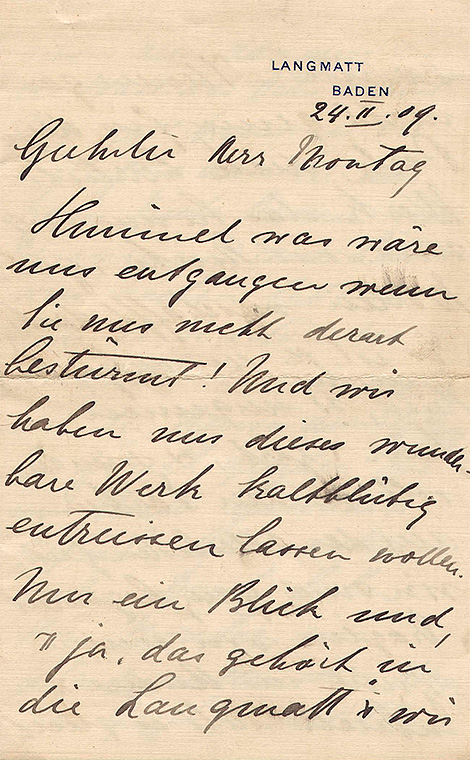 LANGMATT
BADEN
24.II.09.
Geehrter Herr Montag
Himmel was wäre
uns entgangen wenn
Sie uns nicht derart
bestürmt! Und wir
haben uns dieses wunder-
bare Werk kaltblütig
entreissen lassen wollen.
Nur ein Blick und
"ja, das gehört in
die Langmatt", wir